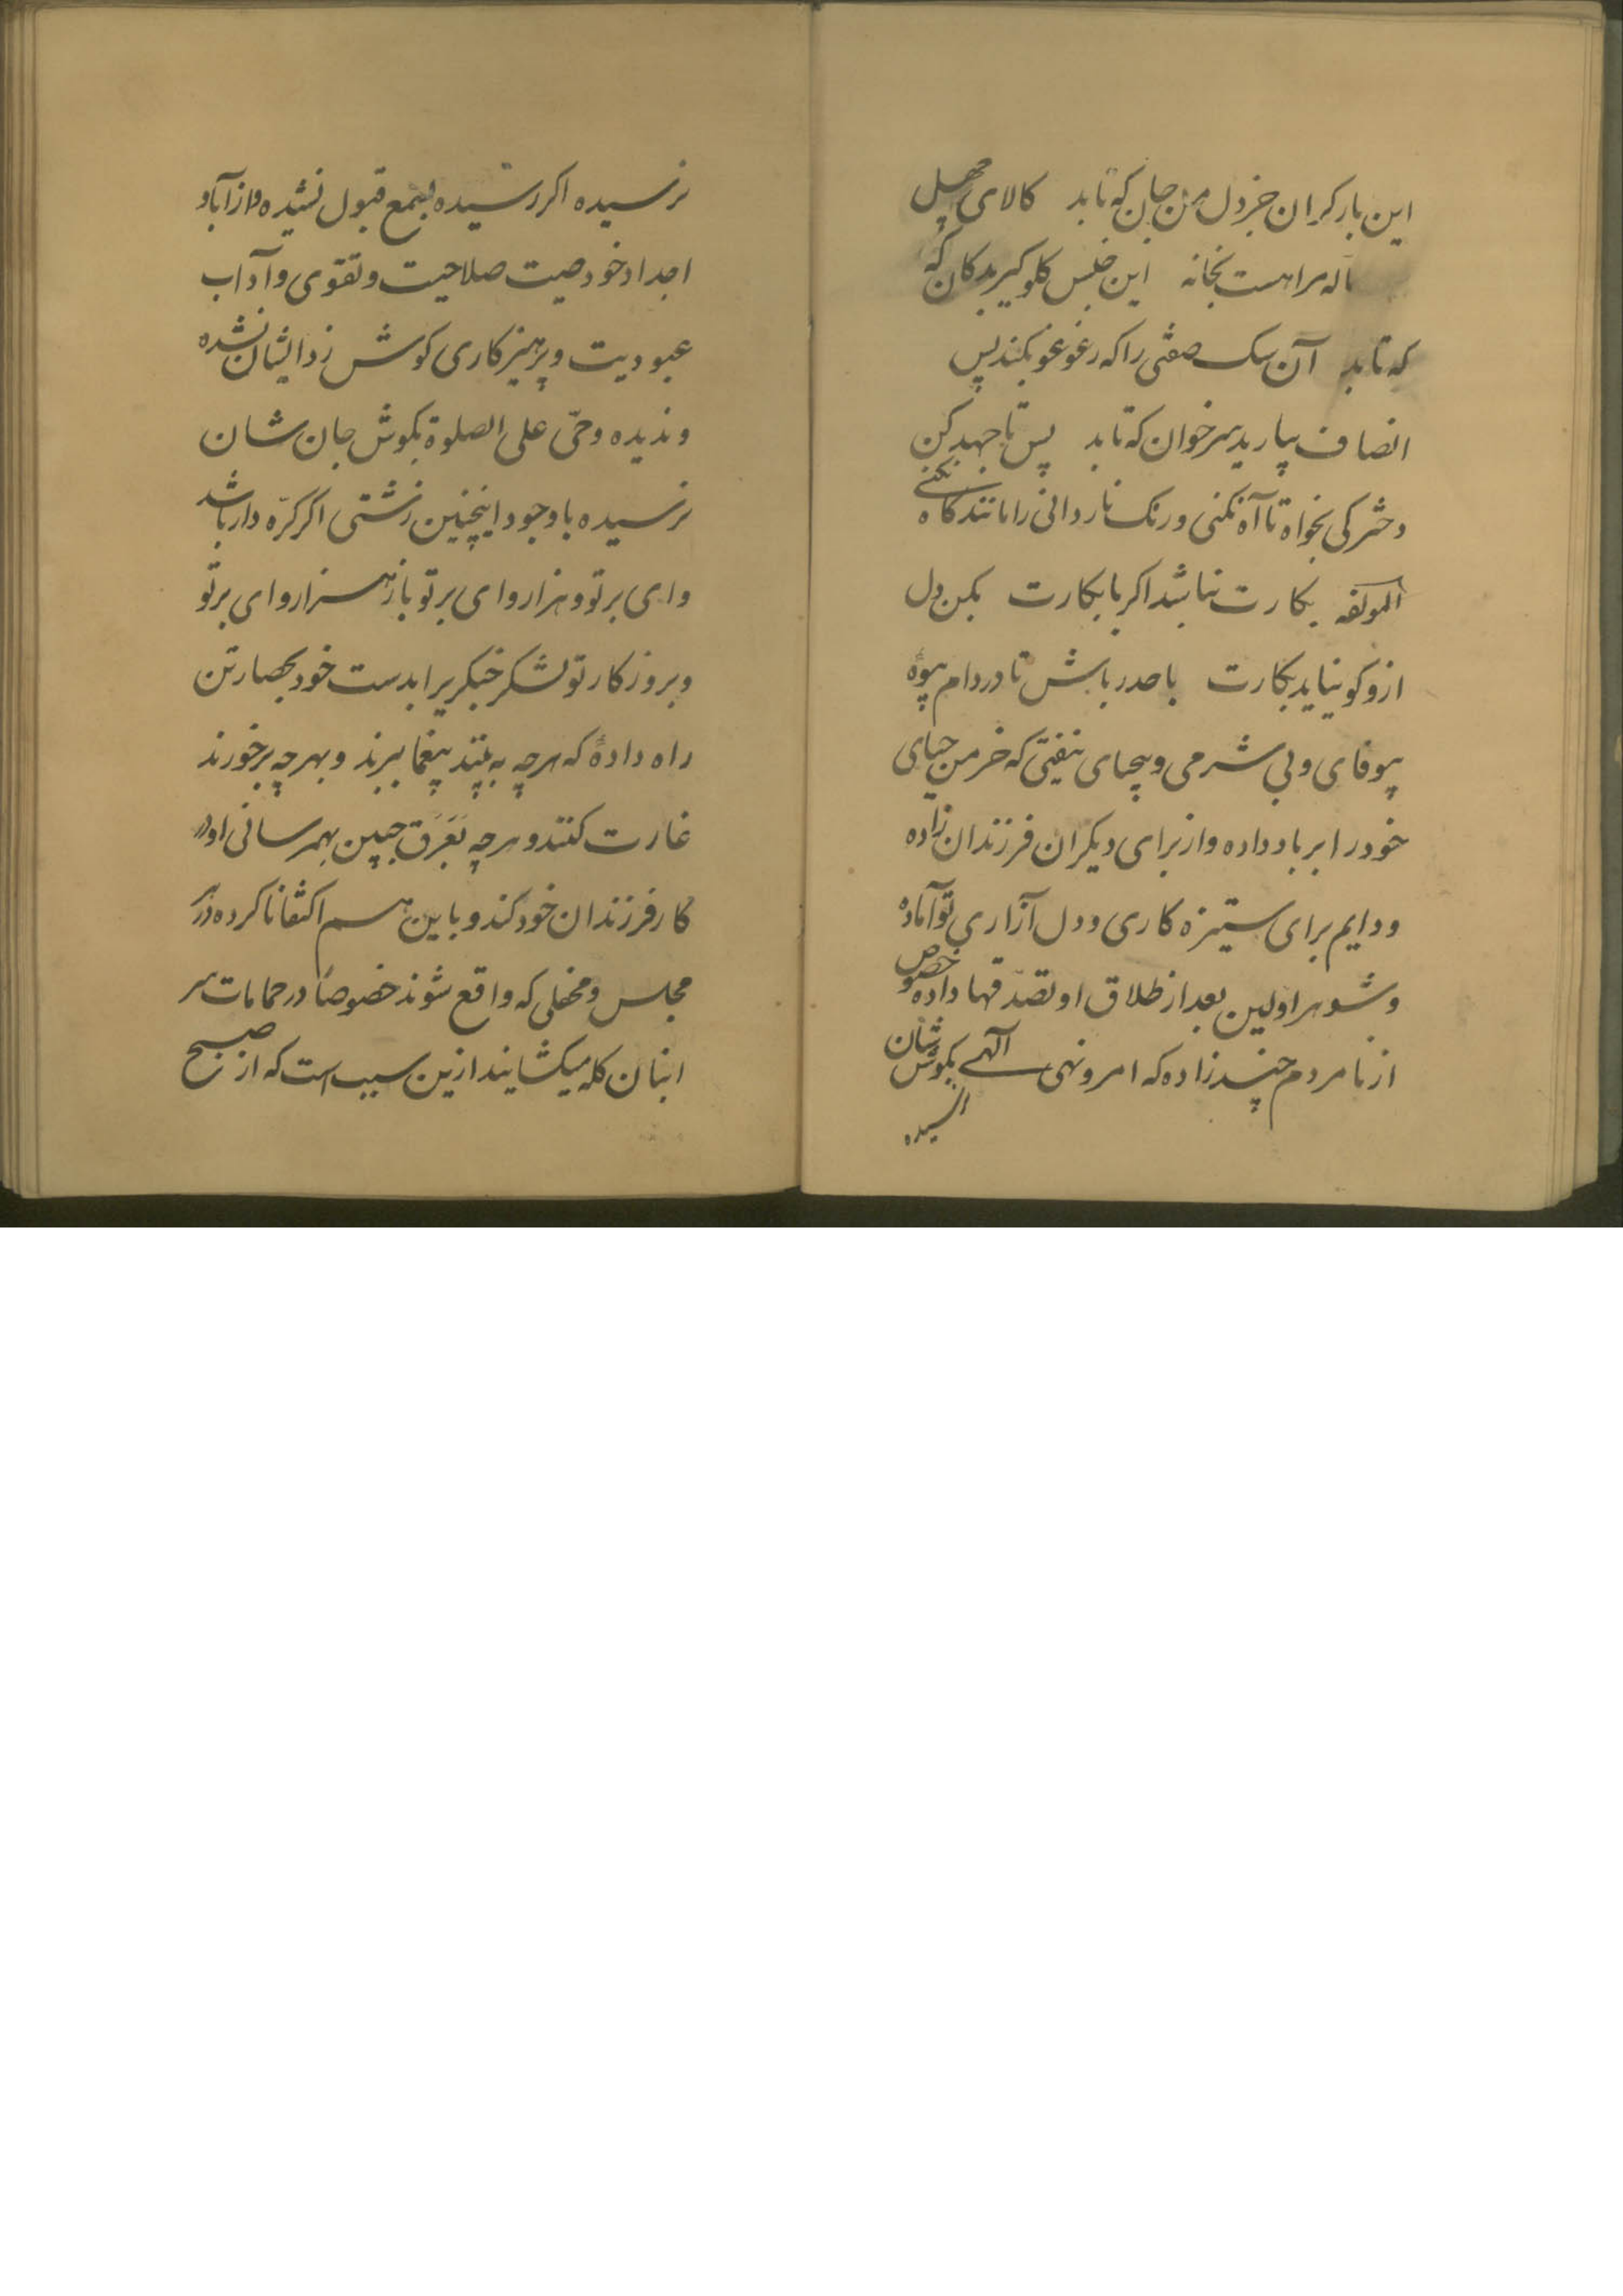 این بار کران جز دل من جان که تابد کالای چهل
ساله مرا هست بخانه این جنس کلوکیر بدکان که
که تابد آن سک صفتی را که زغوغو بکند پس
انصاف بیارید سر خوان که تابد پس تا جهد کن
دخترکی بخواه تا آه نکنی و رنک نار دانی را مانند کاه نکنی
لمولفه بکارت نباشد اکر با بکارت بکن دل
ازو کو نیاید بکارت باحدر باش تا در دام بیوهٔ
بیوفای و بی شرمی و بیحیای نیفتی که خرمن حیای
خود را بر باد داده و از برای دیکران فرزندان زاده
و دایم برای ستیزه کاری و دل آزاری تو آماده
و شوهر اولین بعد از طلاق او تصدقها داده خصوص
از نامردم چند زاده که امر و نهی الهی بکوش شان
نرسیده اکر رسیده بسمع قبول نشنیده و از آبا و
اجداد خود صیت صلاحیت و تقوی و آداب
عبودیت و پرهیزکاری کوش زد ایشان نشده
و ندیده و حی علی الصلوة بکوش جان شان
نرسیده با وجود اینچنین زشتی اکر کره دار باشد
وای بر تو و هزار وای بر تو باز هزار وای بر تو
و بروز کار تو لشکر خیکریرا بدست خود بحصار تن
راه دادهٔ که هرچه به بینند بیغما ببرند و بهرچه برخورند
غارت کنند و هرچه بعرق جبین بهمرسانی او در
کار فرزندان خود کند و باین هم اکتفا ناکرده در هر
مجلس و محفلی که واقع شوند خصوصاً در حمامات سر
انبان کله میکشایند ازین سبب است که از صبح